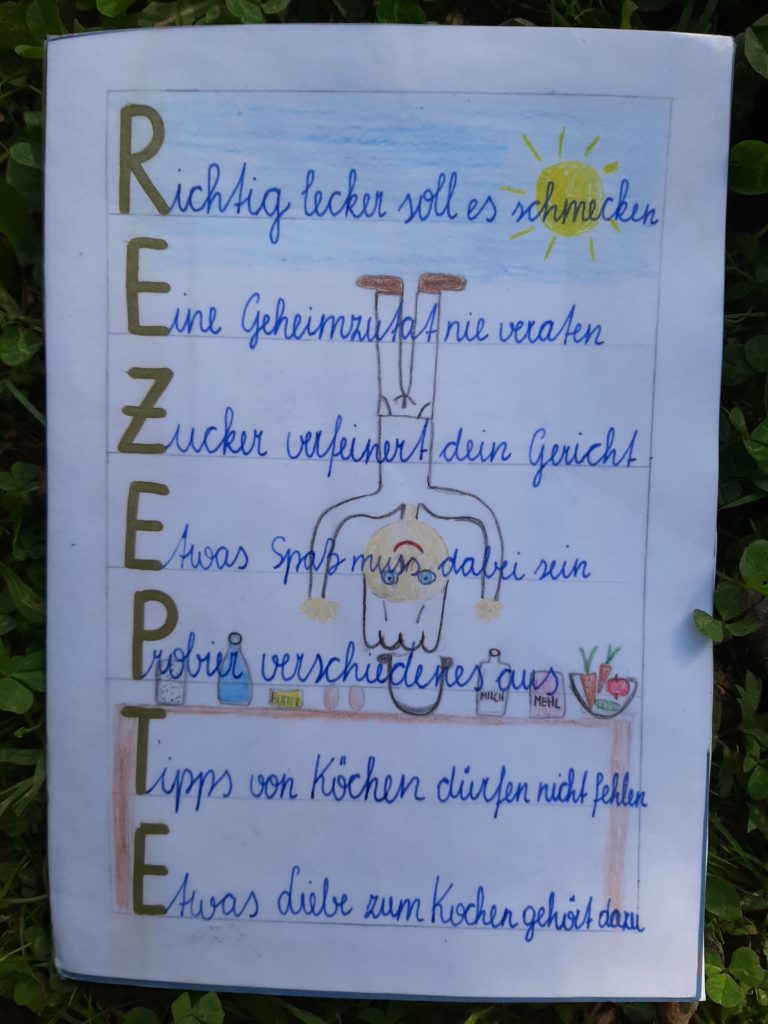 Richtig lecker soll es schmecken
Eine Geheimzutat nie veraten
Zucker verfeinert dein Gericht
Etwas Spaß muss dabei sein
Probier verschiedenes aus
BUTTER
MILCH
MEHL
Tipps von Köchen dürfen nicht fehlen
Etwas Liebe zum Kochen gehört dazu